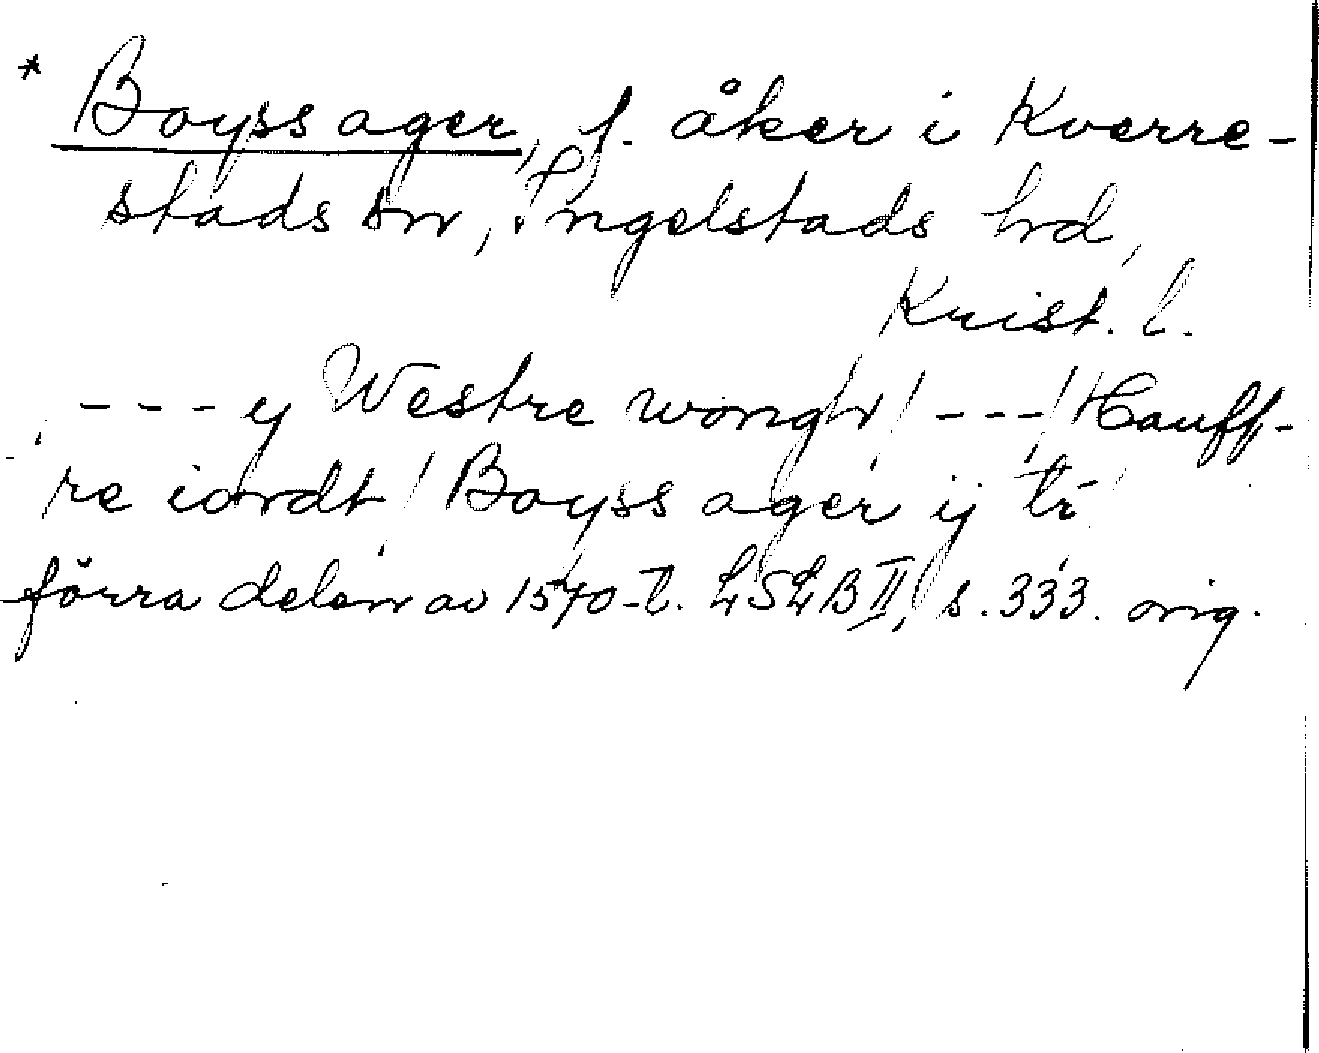 * Boyss ager, f. åker i Kverre-
stads sn, Ingelstads hd,
Krist. l.
- - - y Westre wongh / - - - / Hauff-
re iordt / Boyss ager ij tr
förra delen av 1570-t. LSLB II, s. 333. orig.